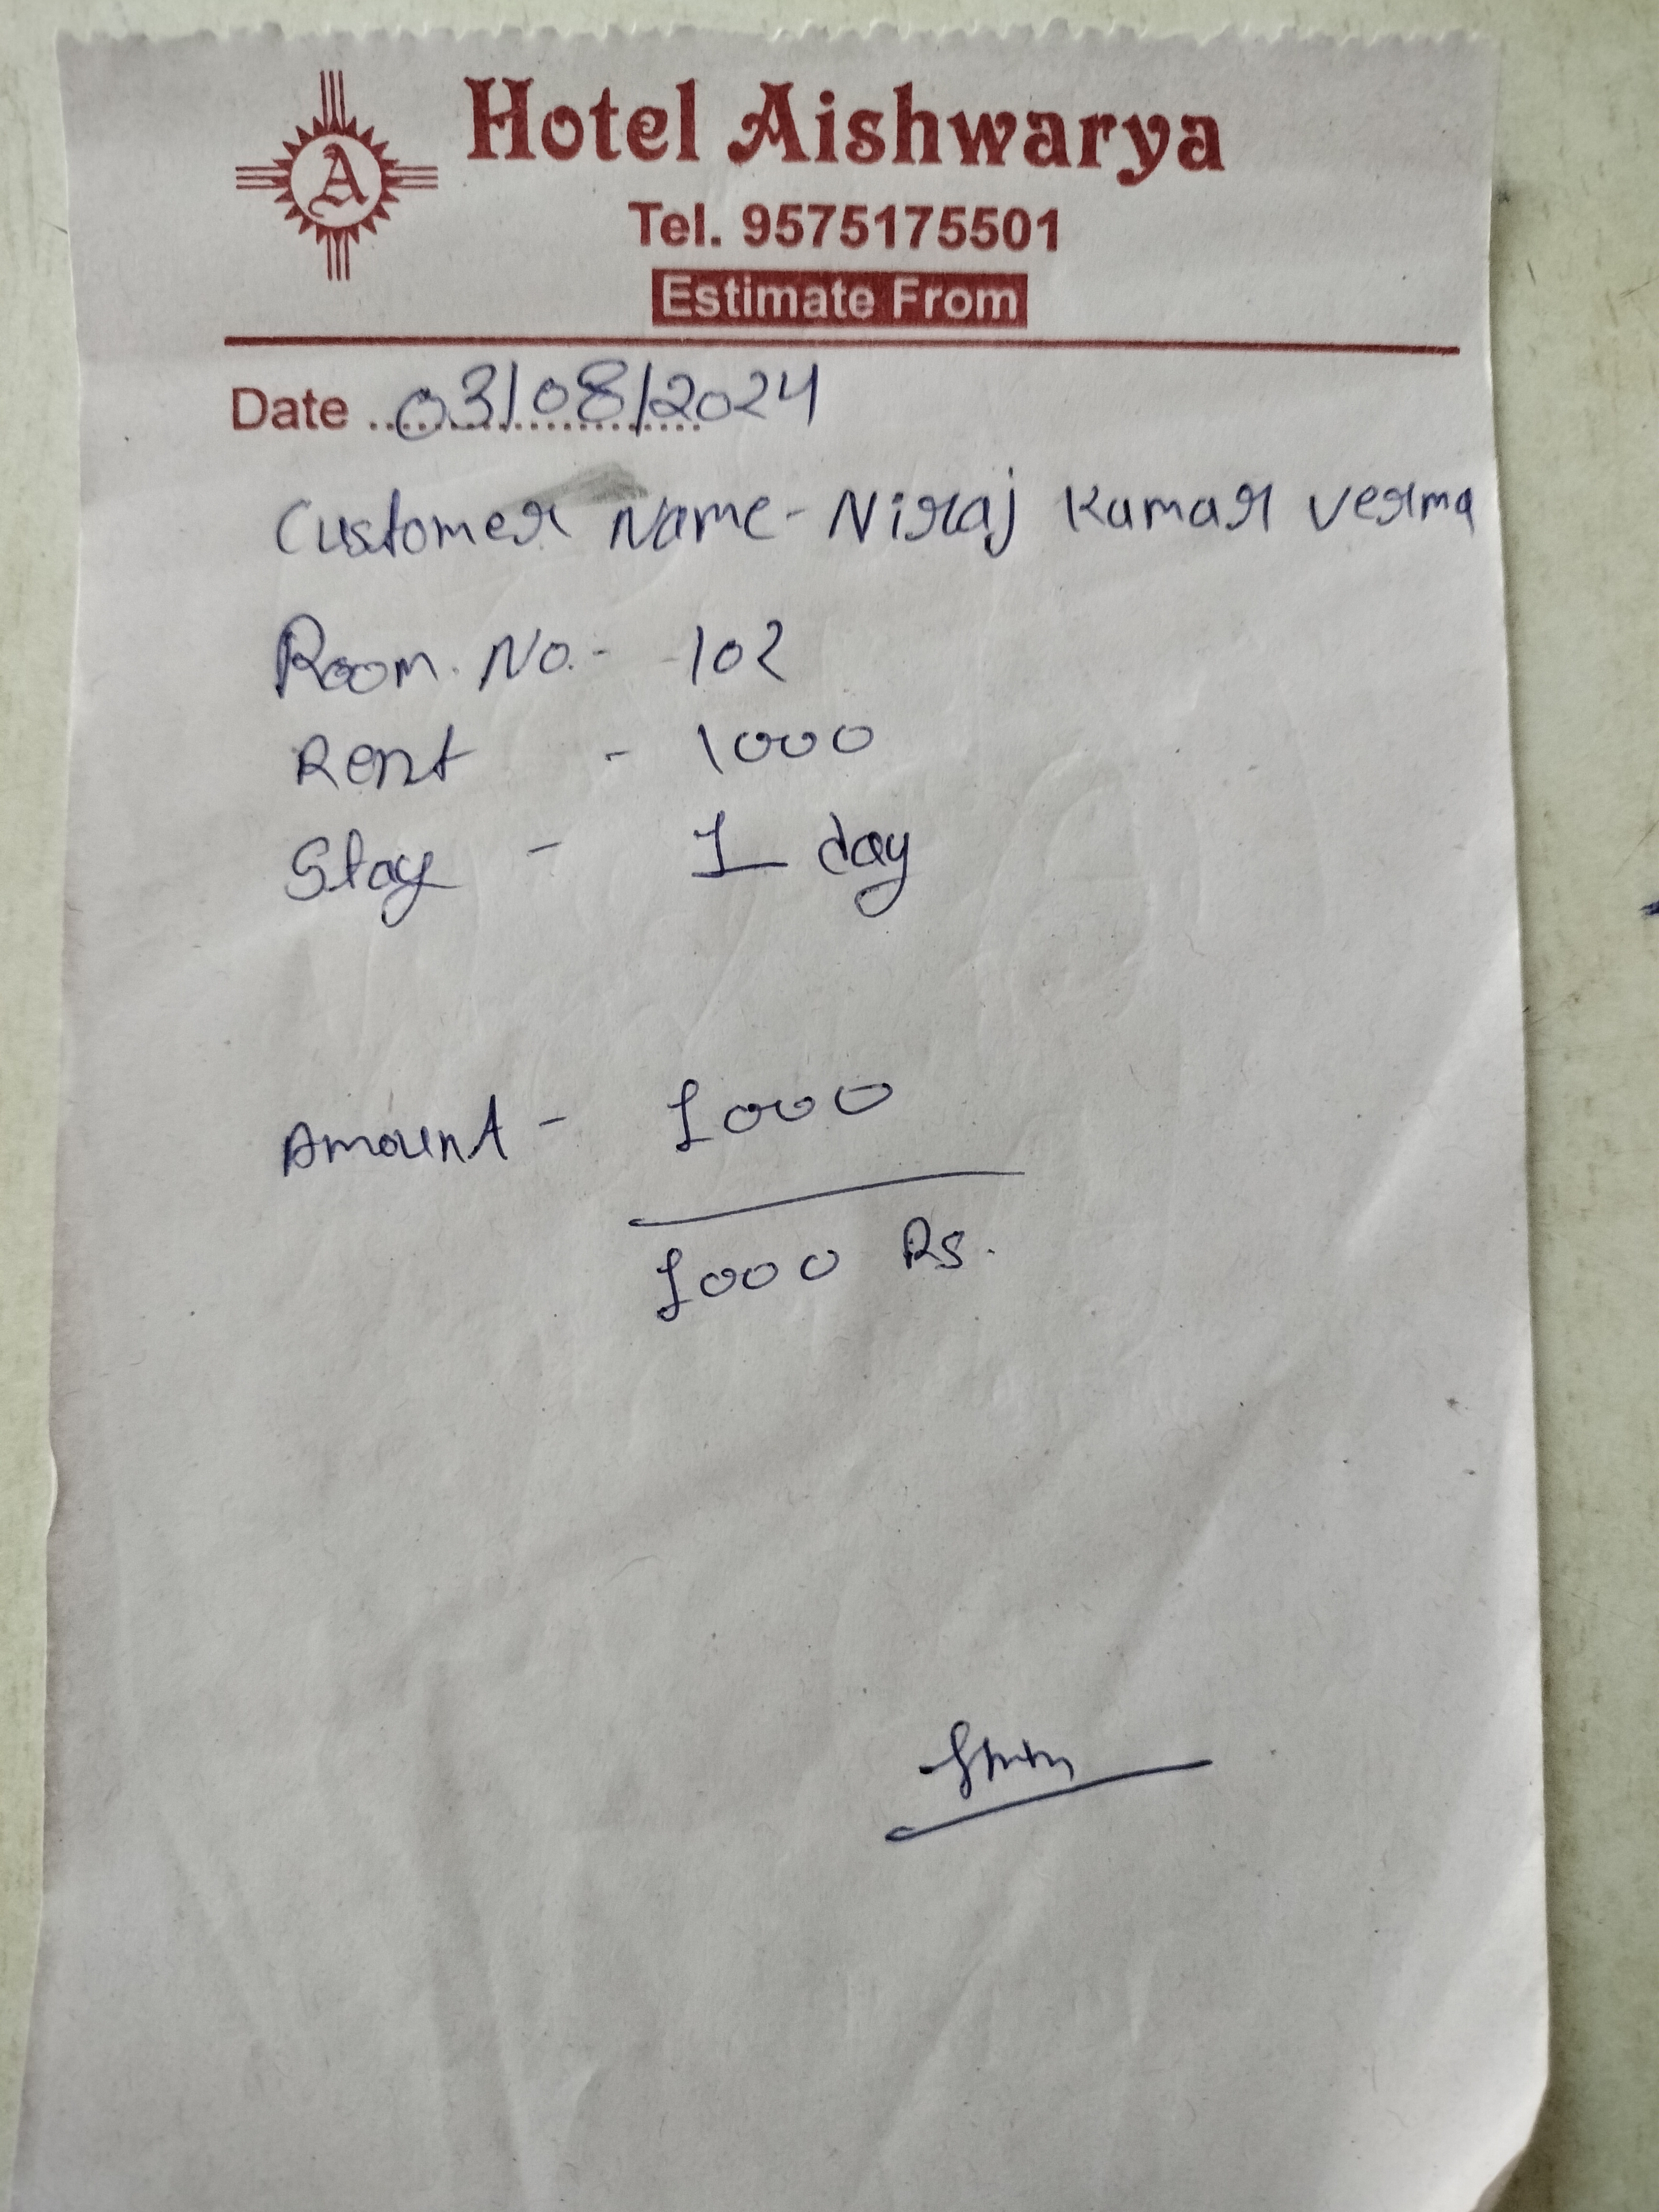 A
Hotel Aishwarya
Tel. 9575175501
Estimate From
Date ..03/08/2024
Customer Name - Niraj Kumar Verma
Room. No. - 102
Rent - 1000
Stay - 1 day
Amount - 1000
1000 Rs.